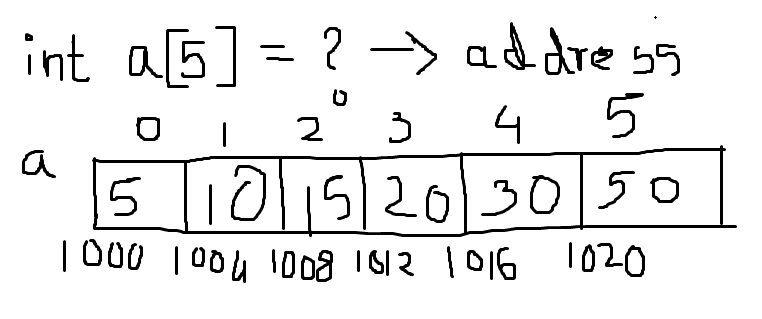 int a[5] = ? → address
0 1 2 0 3 4 5
a 5 10 15 20 30 50
1000 1004 1008 1012 1016 1020